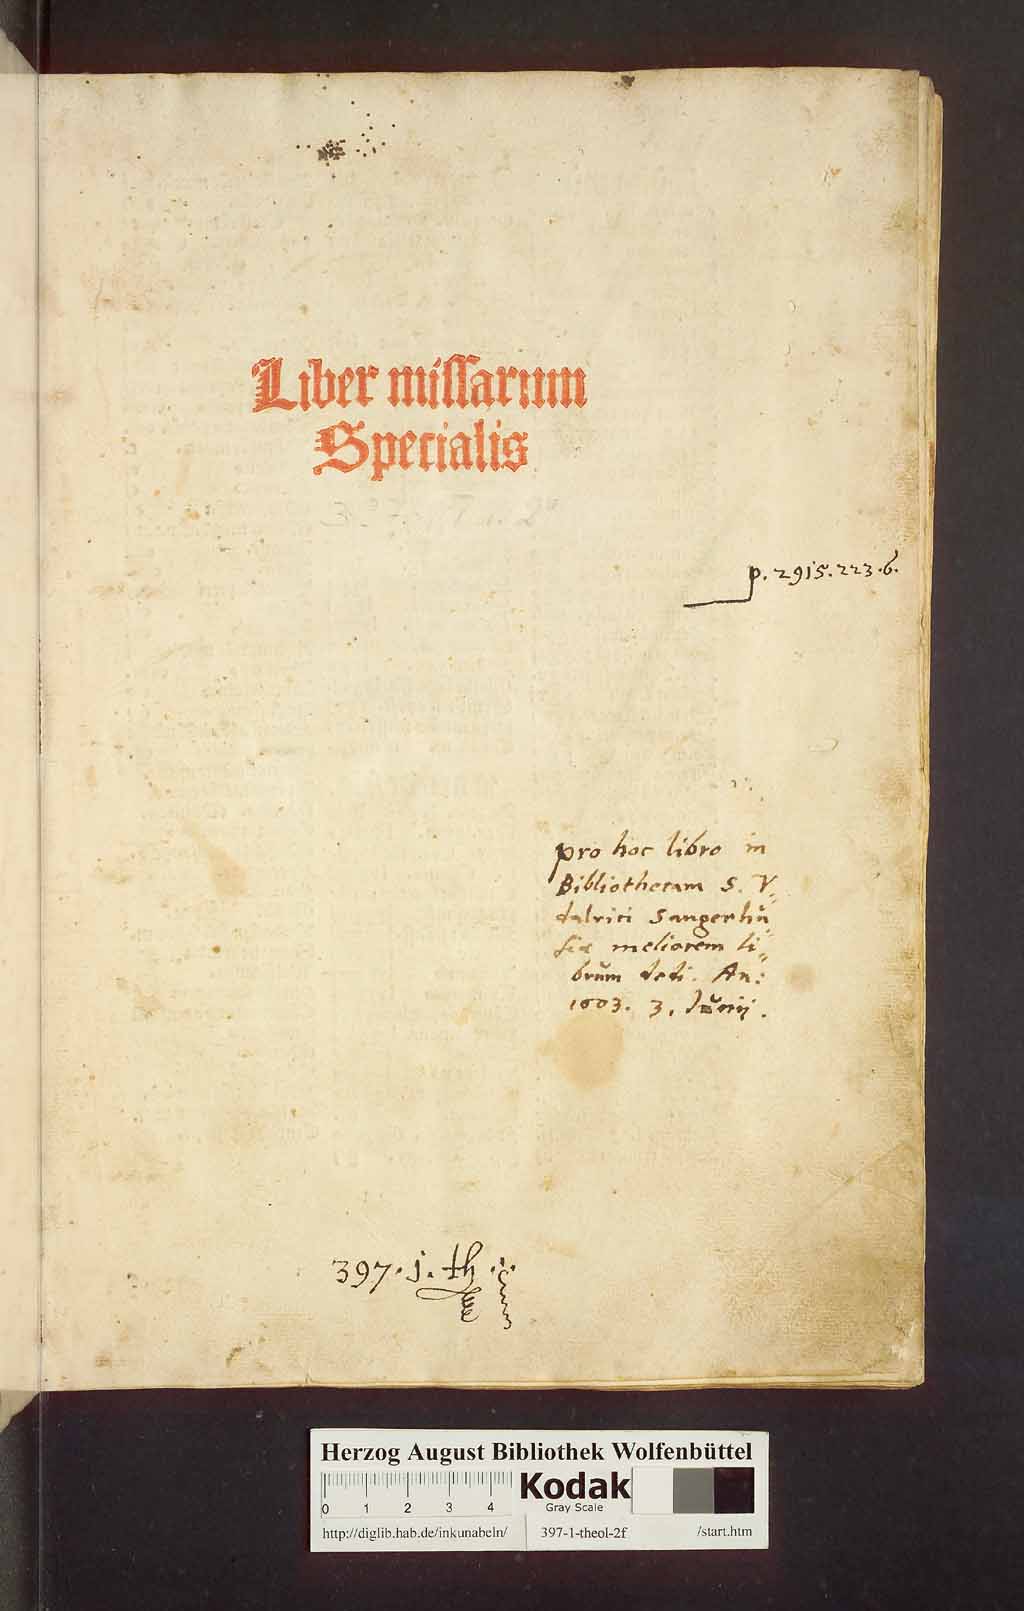 Liber missarum
Specialis
p. 2915. 223. 6.
pro hoc libro in
Bibliothecam S. V
dalrici Sangerhŭ
siæ meliorem li
brŭm dedi. An:
1603. 3. Jŭnij.
397. j. th
Herzog August Bibliothek Wolfenbüttel
0 1 2 3 4
Kodak
Gray Scale
http://diglib.hab.de/inkunabeln/ 397-1-theol-2f /start.htm